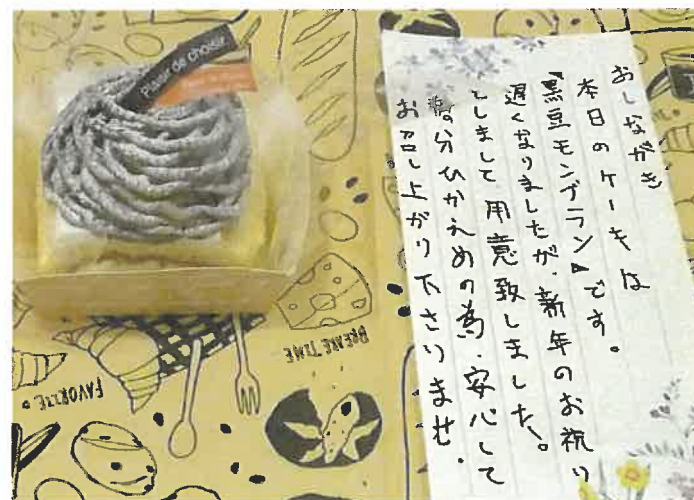 Plaisir de choisir
おしながき
本日のケーキは
『黒豆モンブラン』です。
遅くなりましたが、新年のお祝い
としまして用意致しました。
糖分ひかえめの為、安心して
お召し上がり下さいませ。
BREAKE TIME
FAVORITE